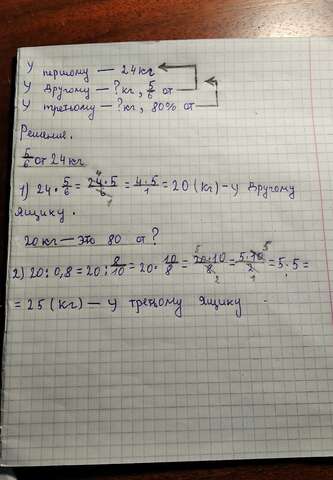 У першому — 24кг
У другому — ?кг, 5/6 от
У третьому — ?кг, 80% от
Решение.
5/6 от 24кг
1) 24 · 5/6 = 24·5/6 = 4·5/1 = 20 (кг) – у другому
ящику.
20кг — это 80 от ?
2) 20 : 0,8 = 20 : 8/10 = 20 · 10/8 = 20·10/8 = 5·10/2 = 5·5 =
= 25 (кг) — у третьому ящику